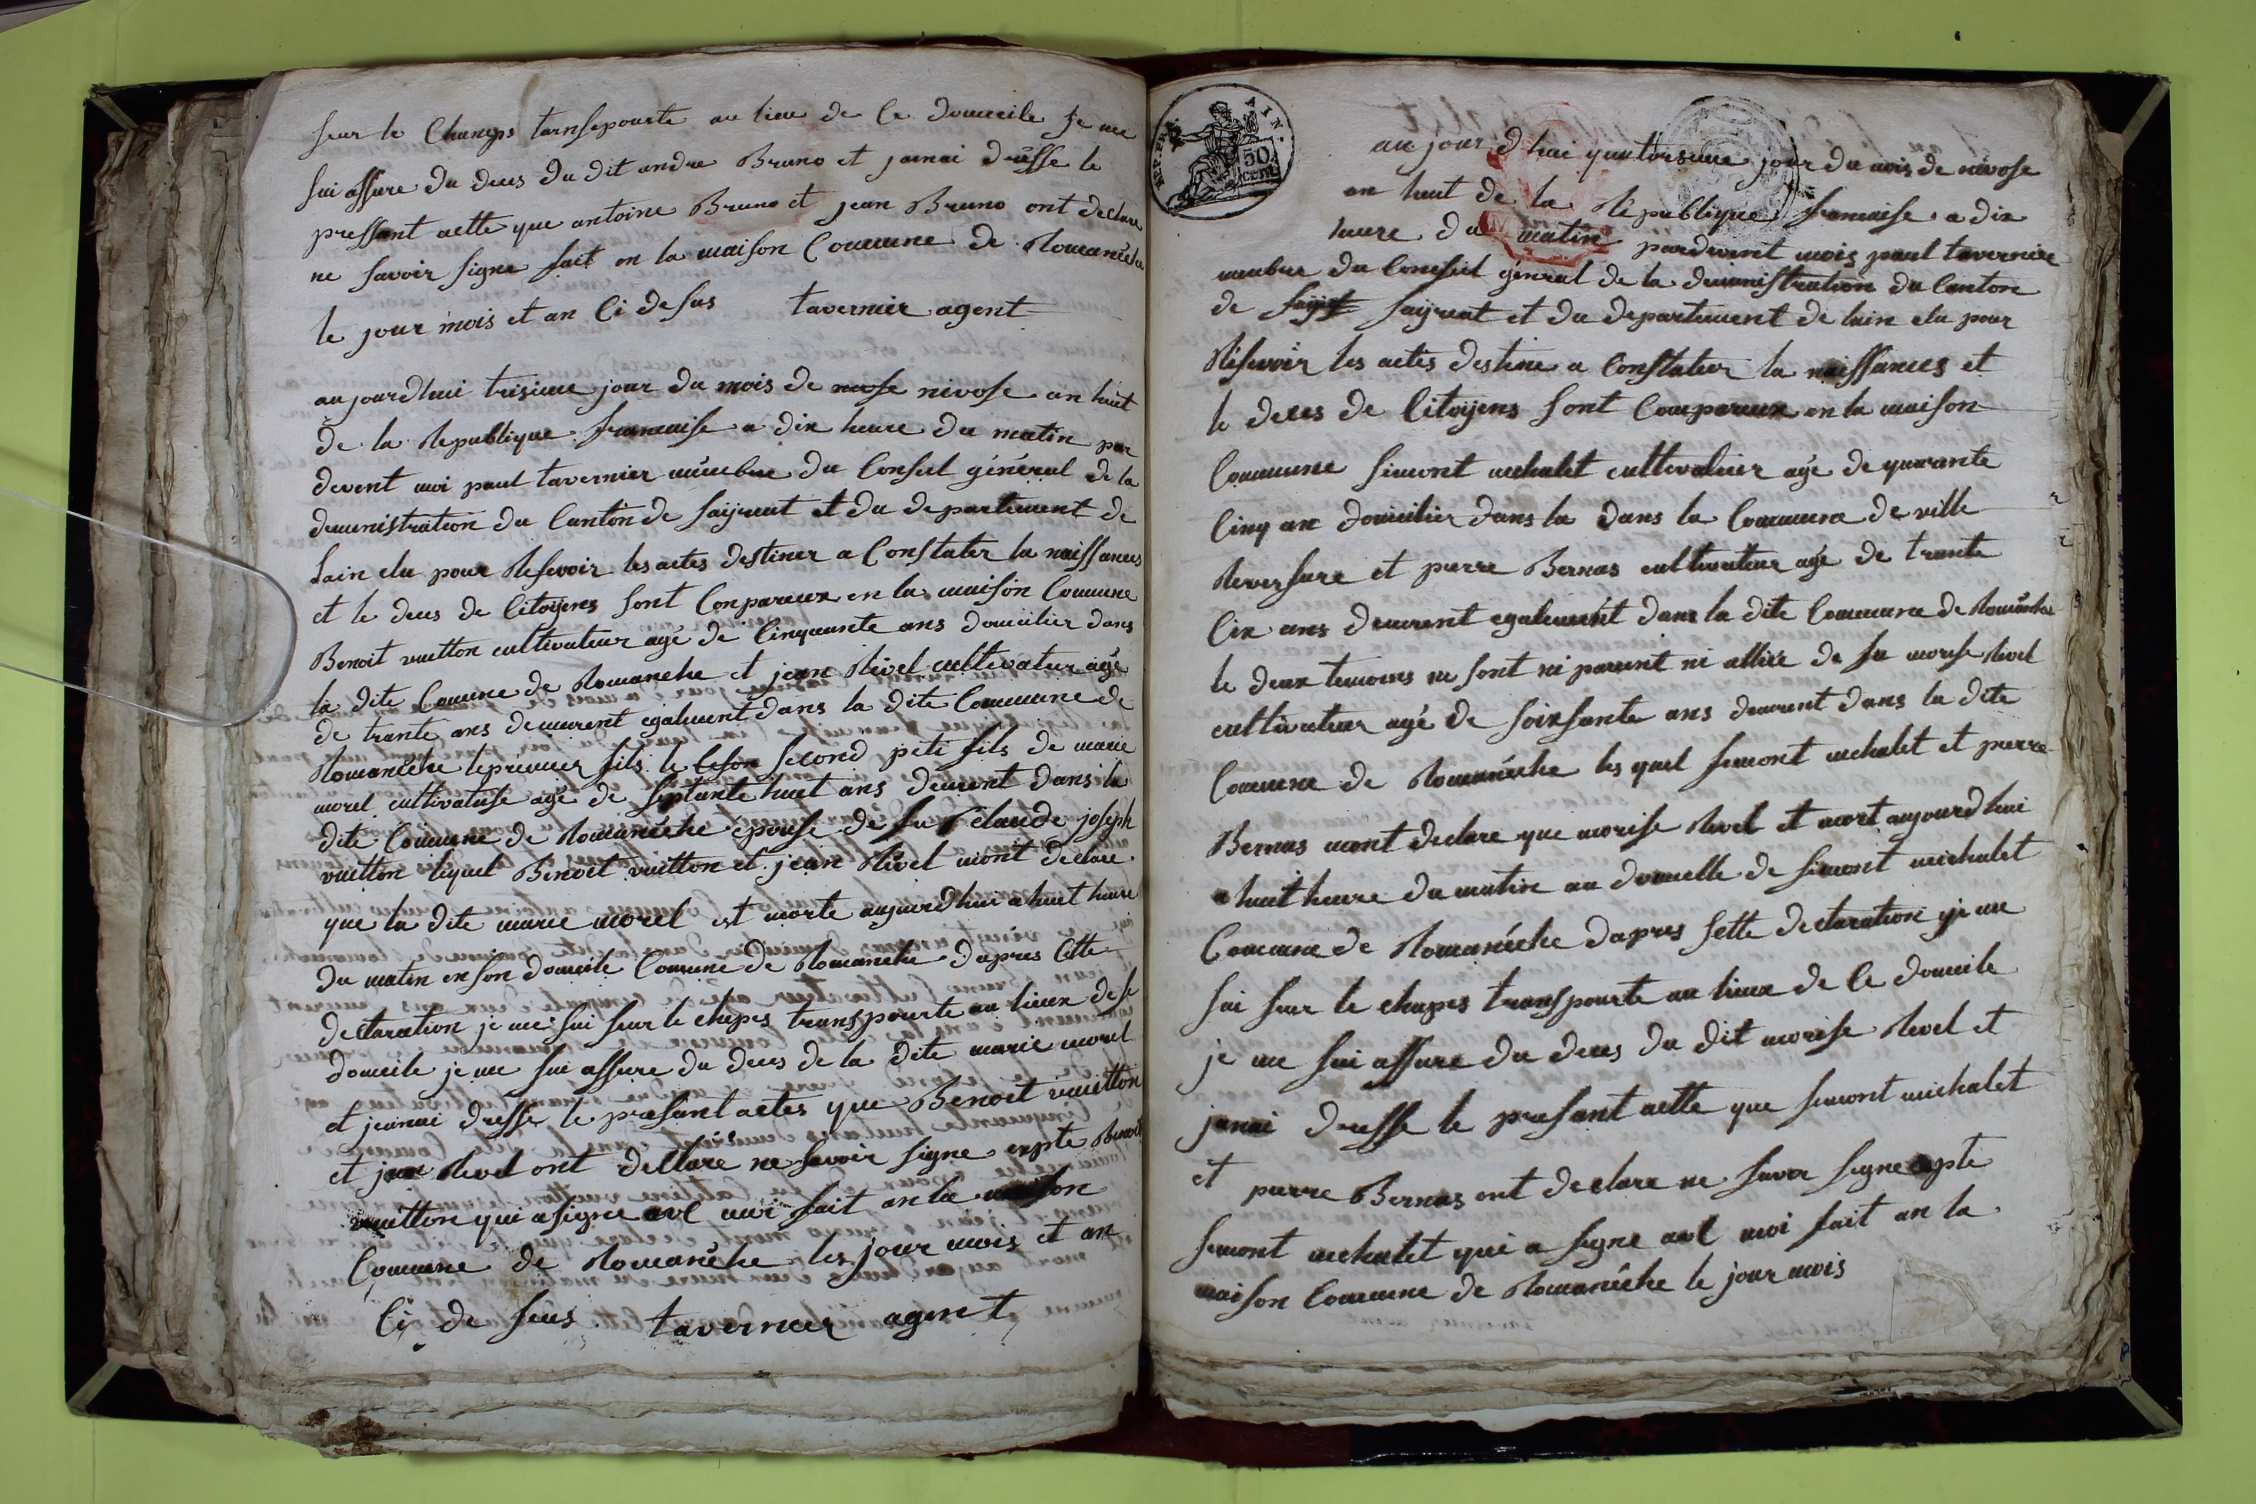 seur le Champs tarnsepourte au lieu de Ce domicile je me
sui assure du deces du dit andre Bruno et jamai drésse le
pressant actte que antoine Bruno et jean Bruno ont declare
ne savoir signe fait en la maison Commune de Romanéche
le jour mois et an Ci desus tavernier agent
aujourdhui trisieme jour du mois de nivose an huit
de la Republique francaise a dix heure du matin par
devent moi paul tavernier membre du Conseil général de la
deministration du Canton de saijriat et du departement de
lain elu pour Resevoir les actes destiner a Constater la naissances
et le deces de Citoÿens sont Conpareux en la maison Commune
Benoit vuitton cultivateur agé de Cinquante ans domicilier dans
la dite Comune de Romaneche et jean Rivel cultivateur agé
de trante ans demeurent également dans la dite Commune de
Romanéche le premier fils le second petit fils de marie
morel cultivatuse agé de septante huit ans demeurent dans la
dite Commune de Romanéche épouse de fu Claude joseph
vuitton lequel Benoit vuitton et jean Rivel mont declare
que la dite marie morel est morte aujourdhui a huit heure
du matin en son domicile Comune de Romaneche daprés Cette
declaration je me sui seur le chapes transpourte au lieux de se
domicile je me sui assure du deces de la dite marie morel
et jeanai dresse le presant actes que Benoit vuitton
et jean Rivel ont decllare ne savoir signe expte Benoit
vuitton qui a signe avec moi fait an la maison
Commune de Romanéche les jour mois et an
Ci de seus tavernier agent
REP. FRA. AIN.
50 cent
au jour dhui quatorsieme jour du mois de nivose
an huit de la République francaise a dix
heure du matin pardevent mois paul tavernier
membre du Conseil géneral de la deministration du Canton
de saijriat et du departement de lain elu pour
Résevoir les actes destine a Constater la naissances et
le deces de Citoÿens sont Compareux en la maison
Commune Simont michalet cultivateur agé de quarante
Cinq an domicilier dans la dans la Commune de ville
Reversure et pierre Bernas cultivateur agé de trante
Cix ans demeurent egalement dans la dite Commune de Romanéche
le deux temoins ne sont ni parent ni alliée de fu morise Rivel
cultivateur agé de soixsante ans demeurent dans la dite
Commune de Romanéche les quel Simont michalet et pierre
Bernas mont declare que morise Rivel et mort aujourdhui
a huit heure du matin au domicile de Simont michalet
Commune de Romanéche dapres sette declaration je me
sui seur le chapes transpourte au lieux de Ce domicile
je me sui assure du deces du dit morise Rivel et
janai dresse le presant actte que Simont michalet
et pierre Bernas ont declare ne savoir signe expte
Simont michalet qui a signe avec moi fait an la
maison Commune de Romanéche le jour mois